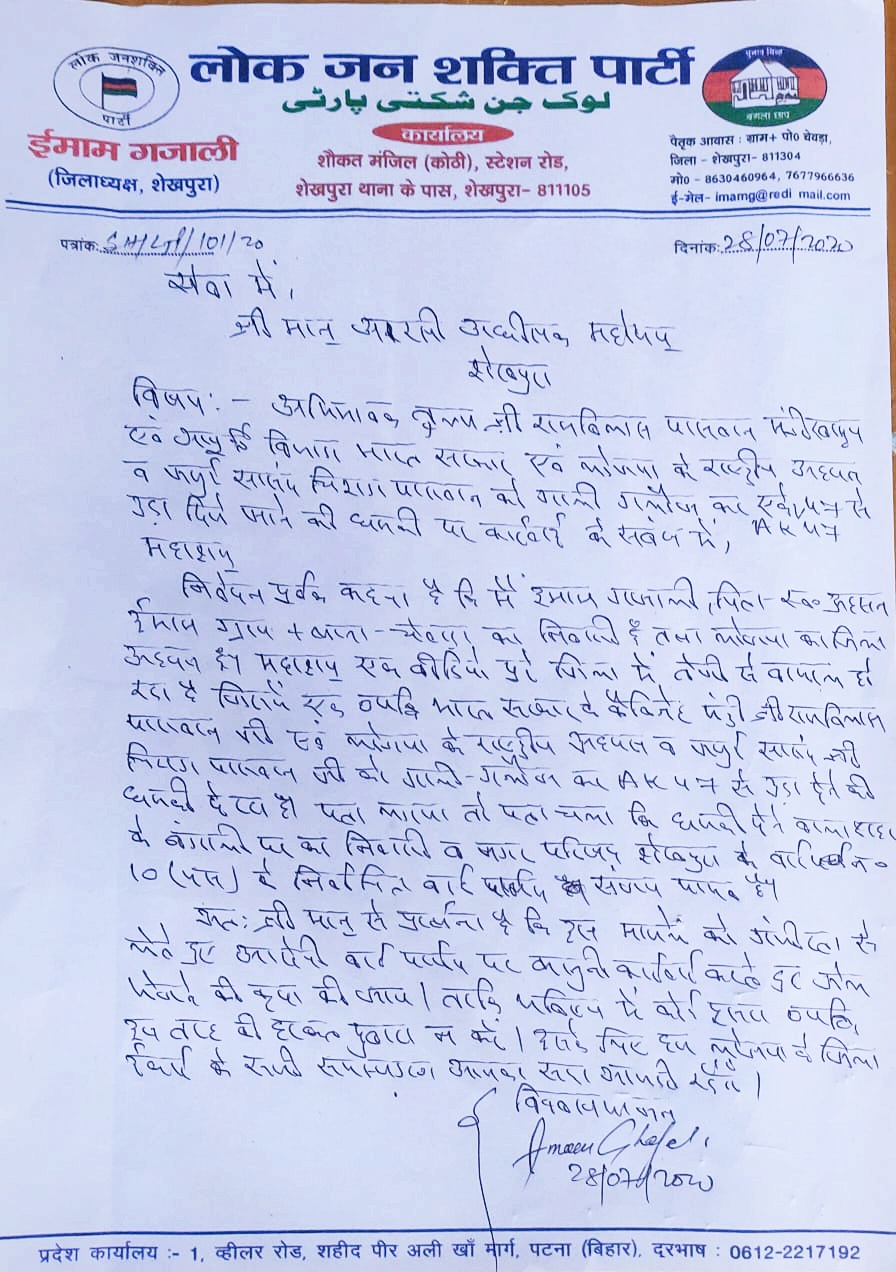 लोक जनशक्ति
पार्टी
लोक जन शक्ति पार्टी
لوک جن شکتی پارٹی
चुनाव चिन्ह
बंगला छाप
ईमाम गजाली
(जिलाध्यक्ष, शेखपुरा)
कार्यालय
शौकत मंजिल (कोठी), स्टेशन रोड,
शेखपुरा थाना के पास, शेखपुरा- 811105
पैतृक आवास : ग्राम+ पो0 चेवड़ा,
जिला - शेखपुरा- 811304
मो0 - 8630460964, 7677966636
ई-मेल- imamg@redi mail.com
पत्रांक: /101/20
दिनांक: 28/07/2020
सेवा में,
श्री मान् आरक्षी अधीक्षक महोदय
शेखपुरा
विषय :- अभिभावक तुल्य श्री रामविलास पासवान मंत्री खाद्य
एवं आपूर्ति विभाग भारत सरकार एवं लोजपा के राष्ट्रीय अध्यक्ष
व जमुई सांसद चिराग पासवान को गाली गलौज कर से
उड़ा दिये जाने की धमकी पर कार्रवाई के संबंध में, AK 47
महाशय
निवेदन पूर्वक कहना है कि मैं ईमाम गजाली, पिता- स्व० अहसन
ईमाम ग्राम + थाना - चेवाड़ा का निवासी हूँ तथा लोजपा का जिला
अध्यक्ष हूँ। महाशय एक वीडियो पूरे जिला में तेजी से वायरल हो
रहा है जिसमें एक व्यक्ति भारत सरकार के कैबिनेट मंत्री श्री रामविलास
पासवान जी एवं लोजपा के राष्ट्रीय अध्यक्ष व जमुई सांसद श्री
चिराग पासवान जी को गाली-गलौज कर AK 47 से उड़ा देने की
धमकी दे रहा है। पता लगाया तो पता चला कि धमकी देने वाला
के बंगाली पर का निवासी व नगर परिषद शेखपुरा के वार्ड न०
10 (दस) के निर्वाचित वार्ड पार्षद संजय यादव है।
अतः श्री मान् से प्रार्थना है कि इस मामले को गंभीरता से
लेते हुए आरोपी वार्ड पार्षद पर कानूनी कार्रवाई करते हुए जेल
भेजने की कृपा की जाय। ताकि भविष्य में कोई दूसरा व्यक्ति
इस तरह की हरकत दुबारा न करें। इसके लिए हम लोजपा के जिला
ईकाई के सभी आपका सदा आभारी रहेंगे।
विश्वासभाजन
28/07/2020
प्रदेश कार्यालय :- 1, व्हीलर रोड, शहीद पीर अली खाँ मार्ग, पटना (बिहार), दूरभाष : 0612-2217192